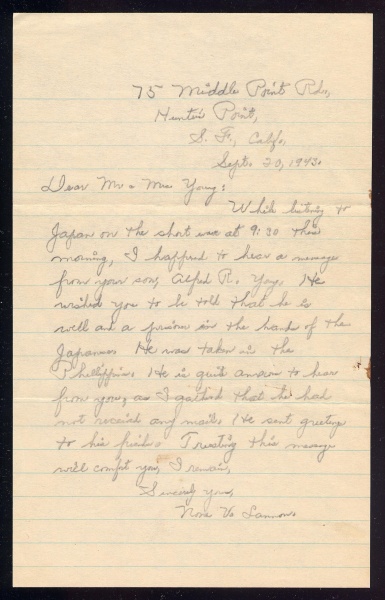 75 Middle Point Rd.,
Hunters Point,
S. F., Calif.
Sept. 20, 1943.
Dear Mr & Mrs Young:
While listing to
Japan on the short wave at 9:30 this
morning, I happend to hear a message
from your son, Alfred R. Young. He
wished you to be told that he is
well and a prison in the hands of the
Japanese. He was taken in the
Phillippines. He is quit anxious to hear
from you, as I gathed that he had
not received any mail. He sent greetings
to his friends. Trusting this message
will comfort you, I remain,
Sincerely yours,
Nora V.